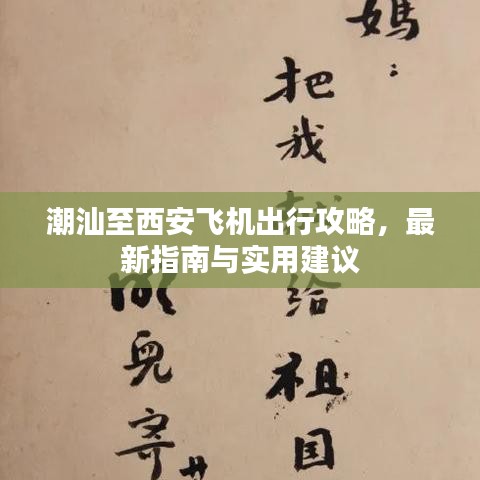 潮汕至西安飞机出行攻略，最
新指南与实用建议
媽：
把我给祖国
兒寄